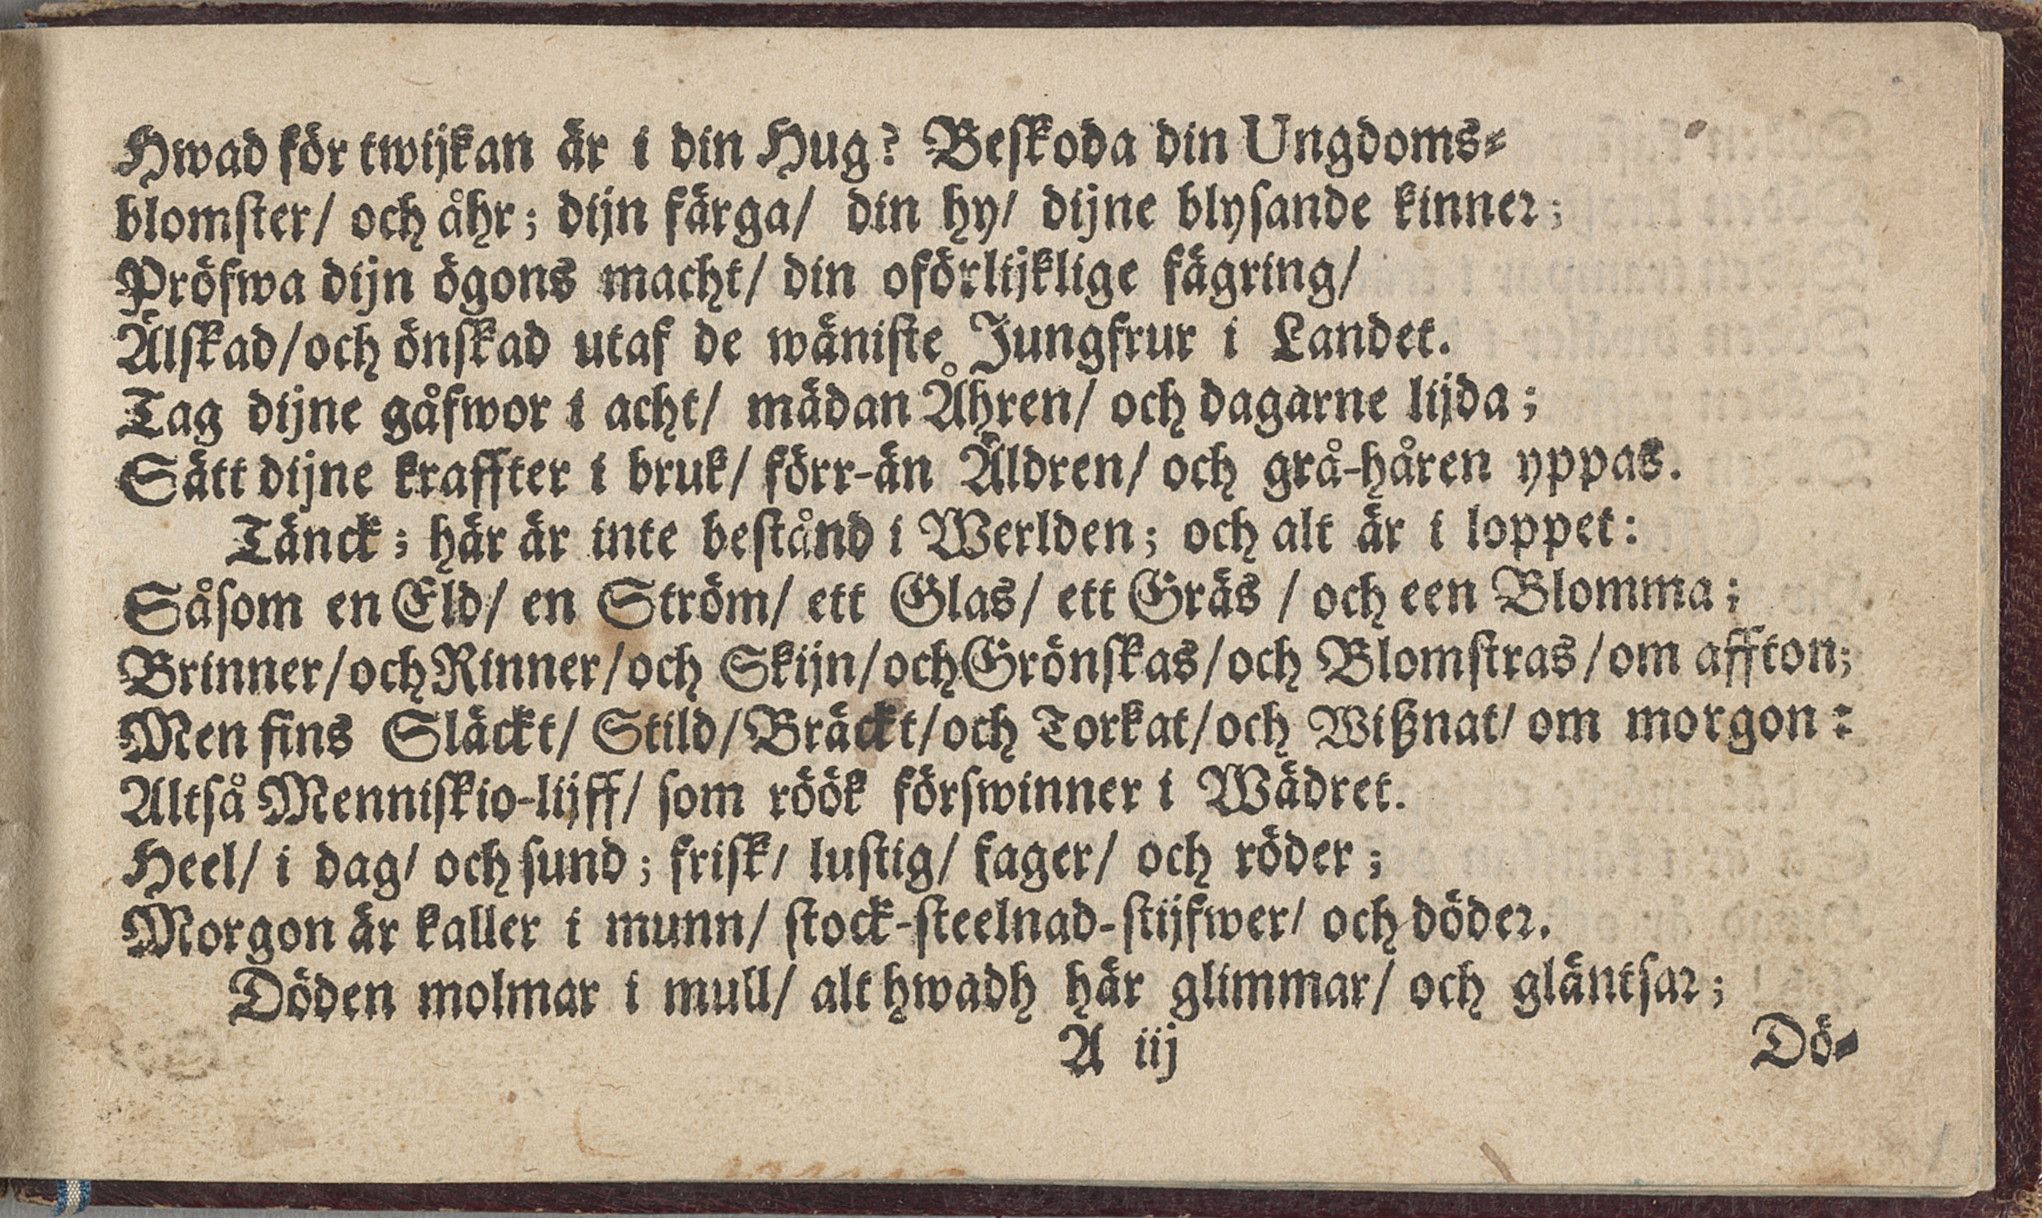 Hwad för twijkan är i din Hug? Beskoda din Ungdoms-
blomster/ och åhr; dijn färga/ din hy/ dijne blysande kinner;
Pröfwa dijn ögons macht/ din oförlijklige fägring/
Älskad/och önskad utaf de wäniste Jungfrur i Landet.
Tag dijne gåfwor i acht/ mädan Åhren/ och dagarne lijda;
Sätt dijne kraffter i bruk/ förr-än Åldren/ och grå-håren yppas.
Tänck; här är inte bestånd i Werlden; och alt är i loppet:
Såsom en Eld/ en Ström/ ett Glas/ ett Gräs / och een Blomma;
Brinner/och Rinner/och Skijn/och Grönskas/och Blomstras/om affton;
Men fins Släckt/ Stild/Bräckt/och Torkat/och Wißnat/ om morgon:
Altså Menniskio-lijff/ som röök förswinner i Wädret.
Heel/ i dag/ och sund; frisk/ lustig/ fager/ och röder;
Morgon är kaller i munn/ stock-steelnad-stijfwer/ och döder.
Döden molmar i mull/ alt hwadh här glimmar/ och gläntsar;
A iij Dö-